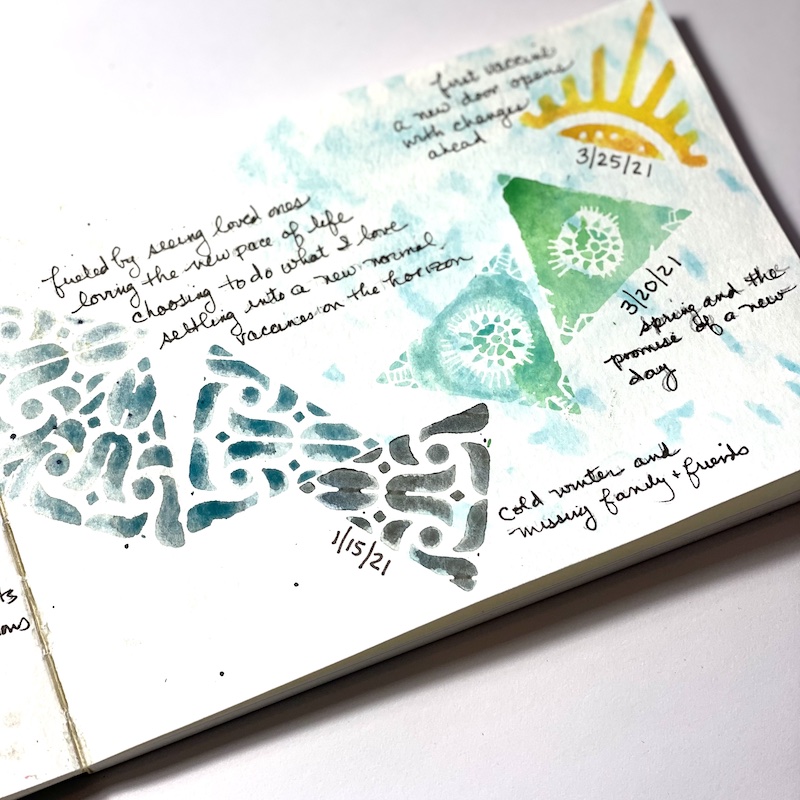 first vaccine
a new door opens
with changes
ahead
3/25/21
fueled by seeing loved ones
loving the new pace of life
choosing to do what I love
settling into a new normal
vaccines on the horizon
3/20/21
spring and the
promise of a new
day
cold winter and
missing family + friends
1/15/21